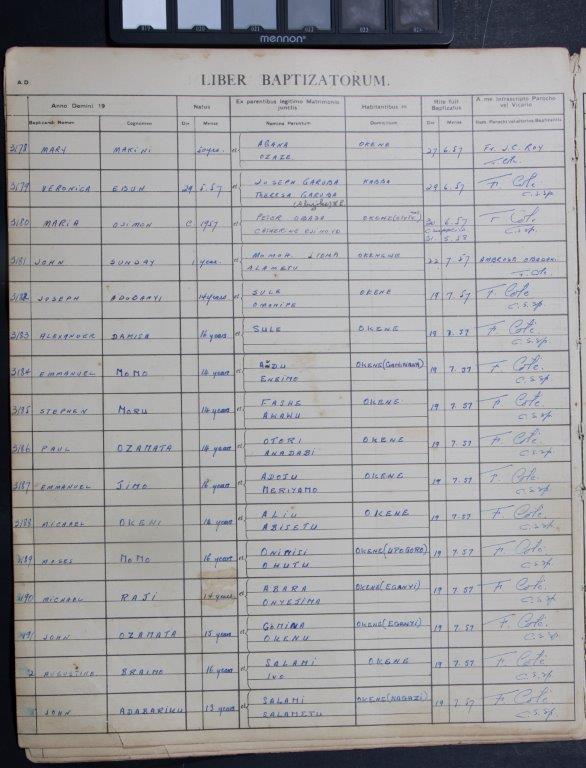 019 020 021 022 023
mennon
LIBER BAPTIZATORUM.
A.D.
Anno Domini 19 Natus Ex parentibus legitimo Matrimonio junctis Habitantibus in Rite fuit Baptizatus A. me. infrascripto Parocho vel Vicario
Baptizandi Nomen Cognomen Die Mense Nomina Parentum Domicilium Die Mense Nom. Parochi vel alterius Baptizantis
3178 MARY MAKINI 20 yrs. et ABANA OZAZE OKENE 27 6.57 Fr. J.C. ROY
3179 VERONICA EBUN 29 5.57 et JOSEPH GARUBA THERESA GARUBA KABBA 29 6.57 F. Coté c.s.sp.
3180 MARIA OJIMON C 1957 et PETER OBAJA CATHERINE OKENE 30 6.57 F. Coté c.s.sp.
31. 5.58
3181 JOHN SUNDAY 1 year. et MOMOH ALAMETU OKENGWE 22 7.57 AMBROSE
3182 JOSEPH ADOBANYI 14 years et SULE OMOHIPE OKENE 19 7.57 F. Coté c.s.sp.
3183 ALEXANDER DAMISA 16 years et SULE OKENE 19 7.57 F. Coté c.s.sp.
3184 EMMANUEL MOMO 14 years et ANDU ENEIMO OKENE 19 7.57 F. Coté c.s.sp.
3185 STEPHEN MORU 14 years et FASHE AWAWU OKENE 19 7.57 F. Coté c.s.sp.
3186 PAUL OZAMATA 14 years et OTORI ANADABI OKENE 19 7.57 F. Coté c.s.sp.
3187 EMMANUEL JIMO 16 years et ADOJU MERIYAMO OKENE 19 7.57 F. Coté c.s.sp.
3188 MICHAEL OKEHI 16 years et ALIU ABISETU OKENE 19 7.57 F. Coté c.s.sp.
3189 MOSES MOMO 16 years et ONIMISI OHUTU OKENE (UPOGORO) 19 7.57 F. Coté c.s.sp.
3190 MICHAEL RAJI 14 years et ABARA ONYEJIMA OKENE (EGANYI) 19 7.57 F. Coté c.s.sp.
JOHN OZAMATA 15 years et GEMINA OKENU OKENE (EGANYI) 19 7.57 F. Coté c.s.sp.
AUGUSTINE BRAIMO 16 years et SALAMI IVO OKENE 19 7.57 F. Coté c.s.sp.
JOHN ADABARIKU 13 years et SALAMI SALAMETU OKENE (NAGAZI) 19 7.57 F. Coté c.s.sp.